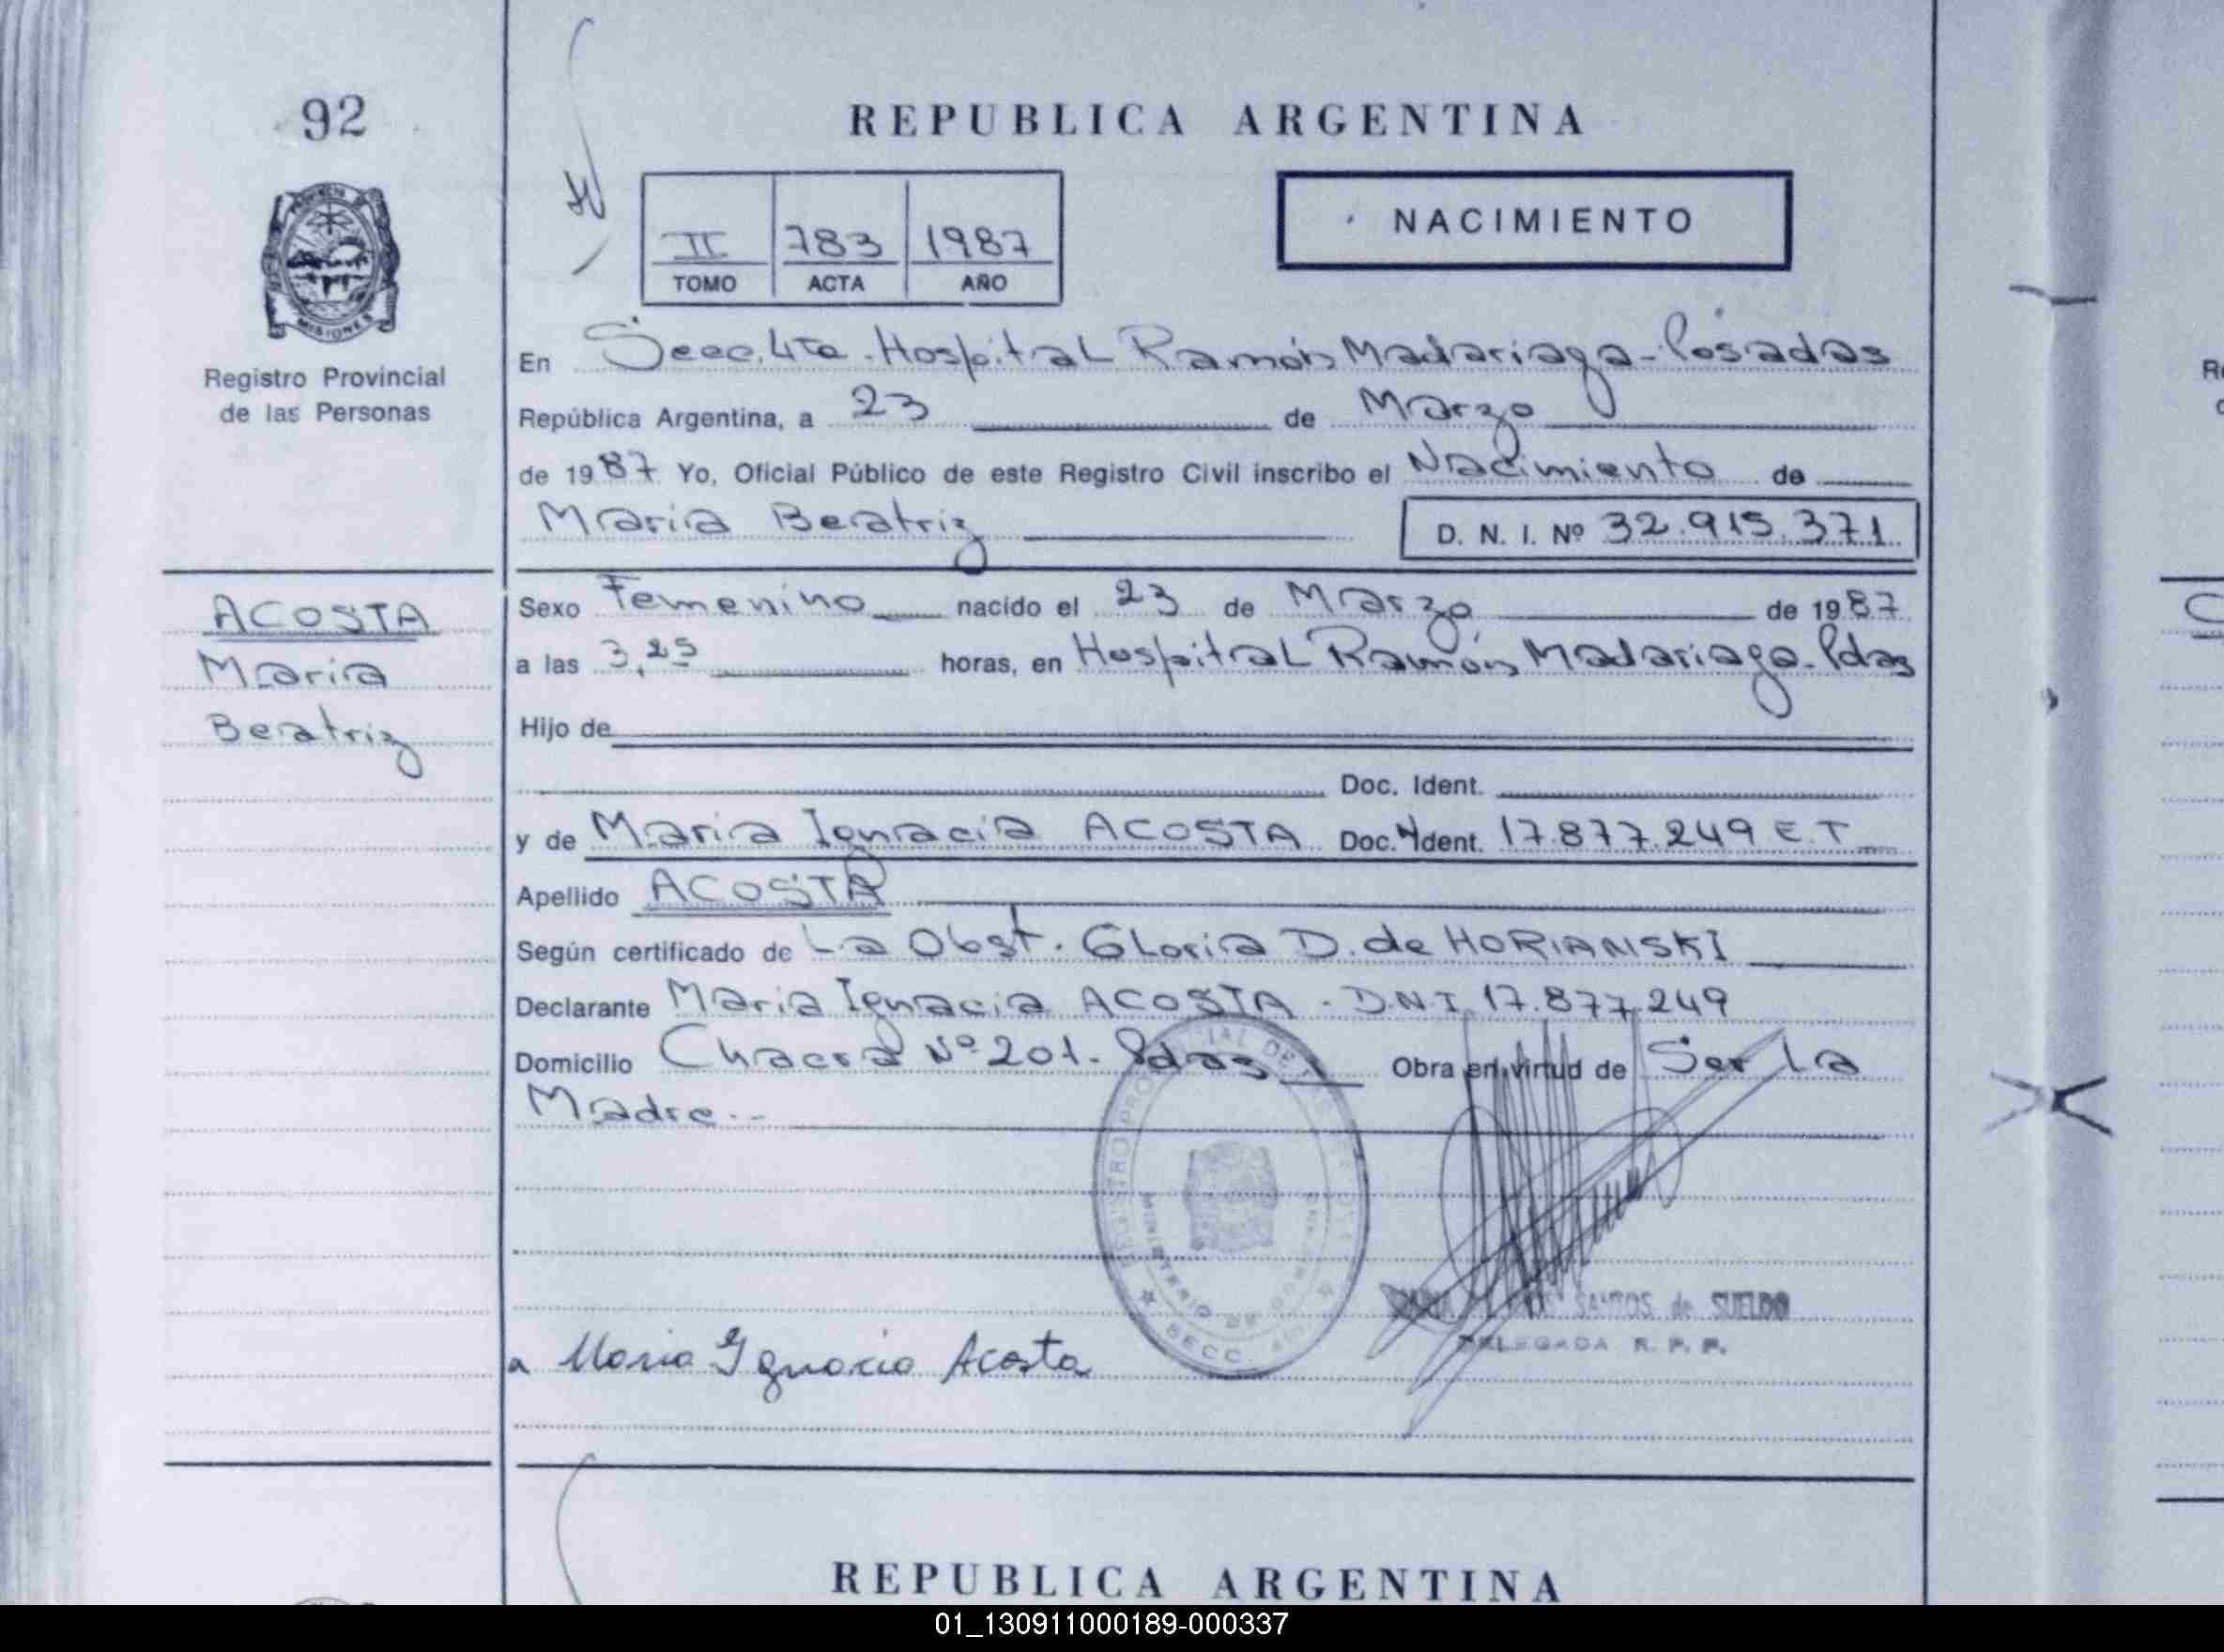 92
REPUBLICA ARGENTINA
II 783 1987
TOMO ACTA AÑO
NACIMIENTO
MISIONES
Registro Provincial
de las Personas
En Secc. 4ta. Hospital Ramón Madariaga - Posadas
República Argentina, a 23 de Marzo
de 1987 Yo, Oficial Público de este Registro Civil inscribo el Nacimiento de
Maria Beatriz D. N. I. Nº 32.915.371
ACOSTA
Maria
Beatriz
Sexo Femenino nacido el 23 de Marzo de 1987
a las 3,25 horas, en Hospital Ramón Madariaga - Pdas
Hijo de
Doc. Ident.
y de Maria Ignacia ACOSTA Doc. Ident. 17.877.249 E.T
Apellido ACOSTA
Según certificado de La Obst. Gloria D. de HORIANSKI
Declarante Maria Ignacia ACOSTA - DNI 17.877.249
Domicilio Chacra Nº 201 - Pdas Obra en virtud de Ser la
Madre.--
SANTOS de SUELDO
DELEGADA R. P. P.
a Maria Ignacia Acosta
REPUBLICA ARGENTINA
01_130911000189-000337